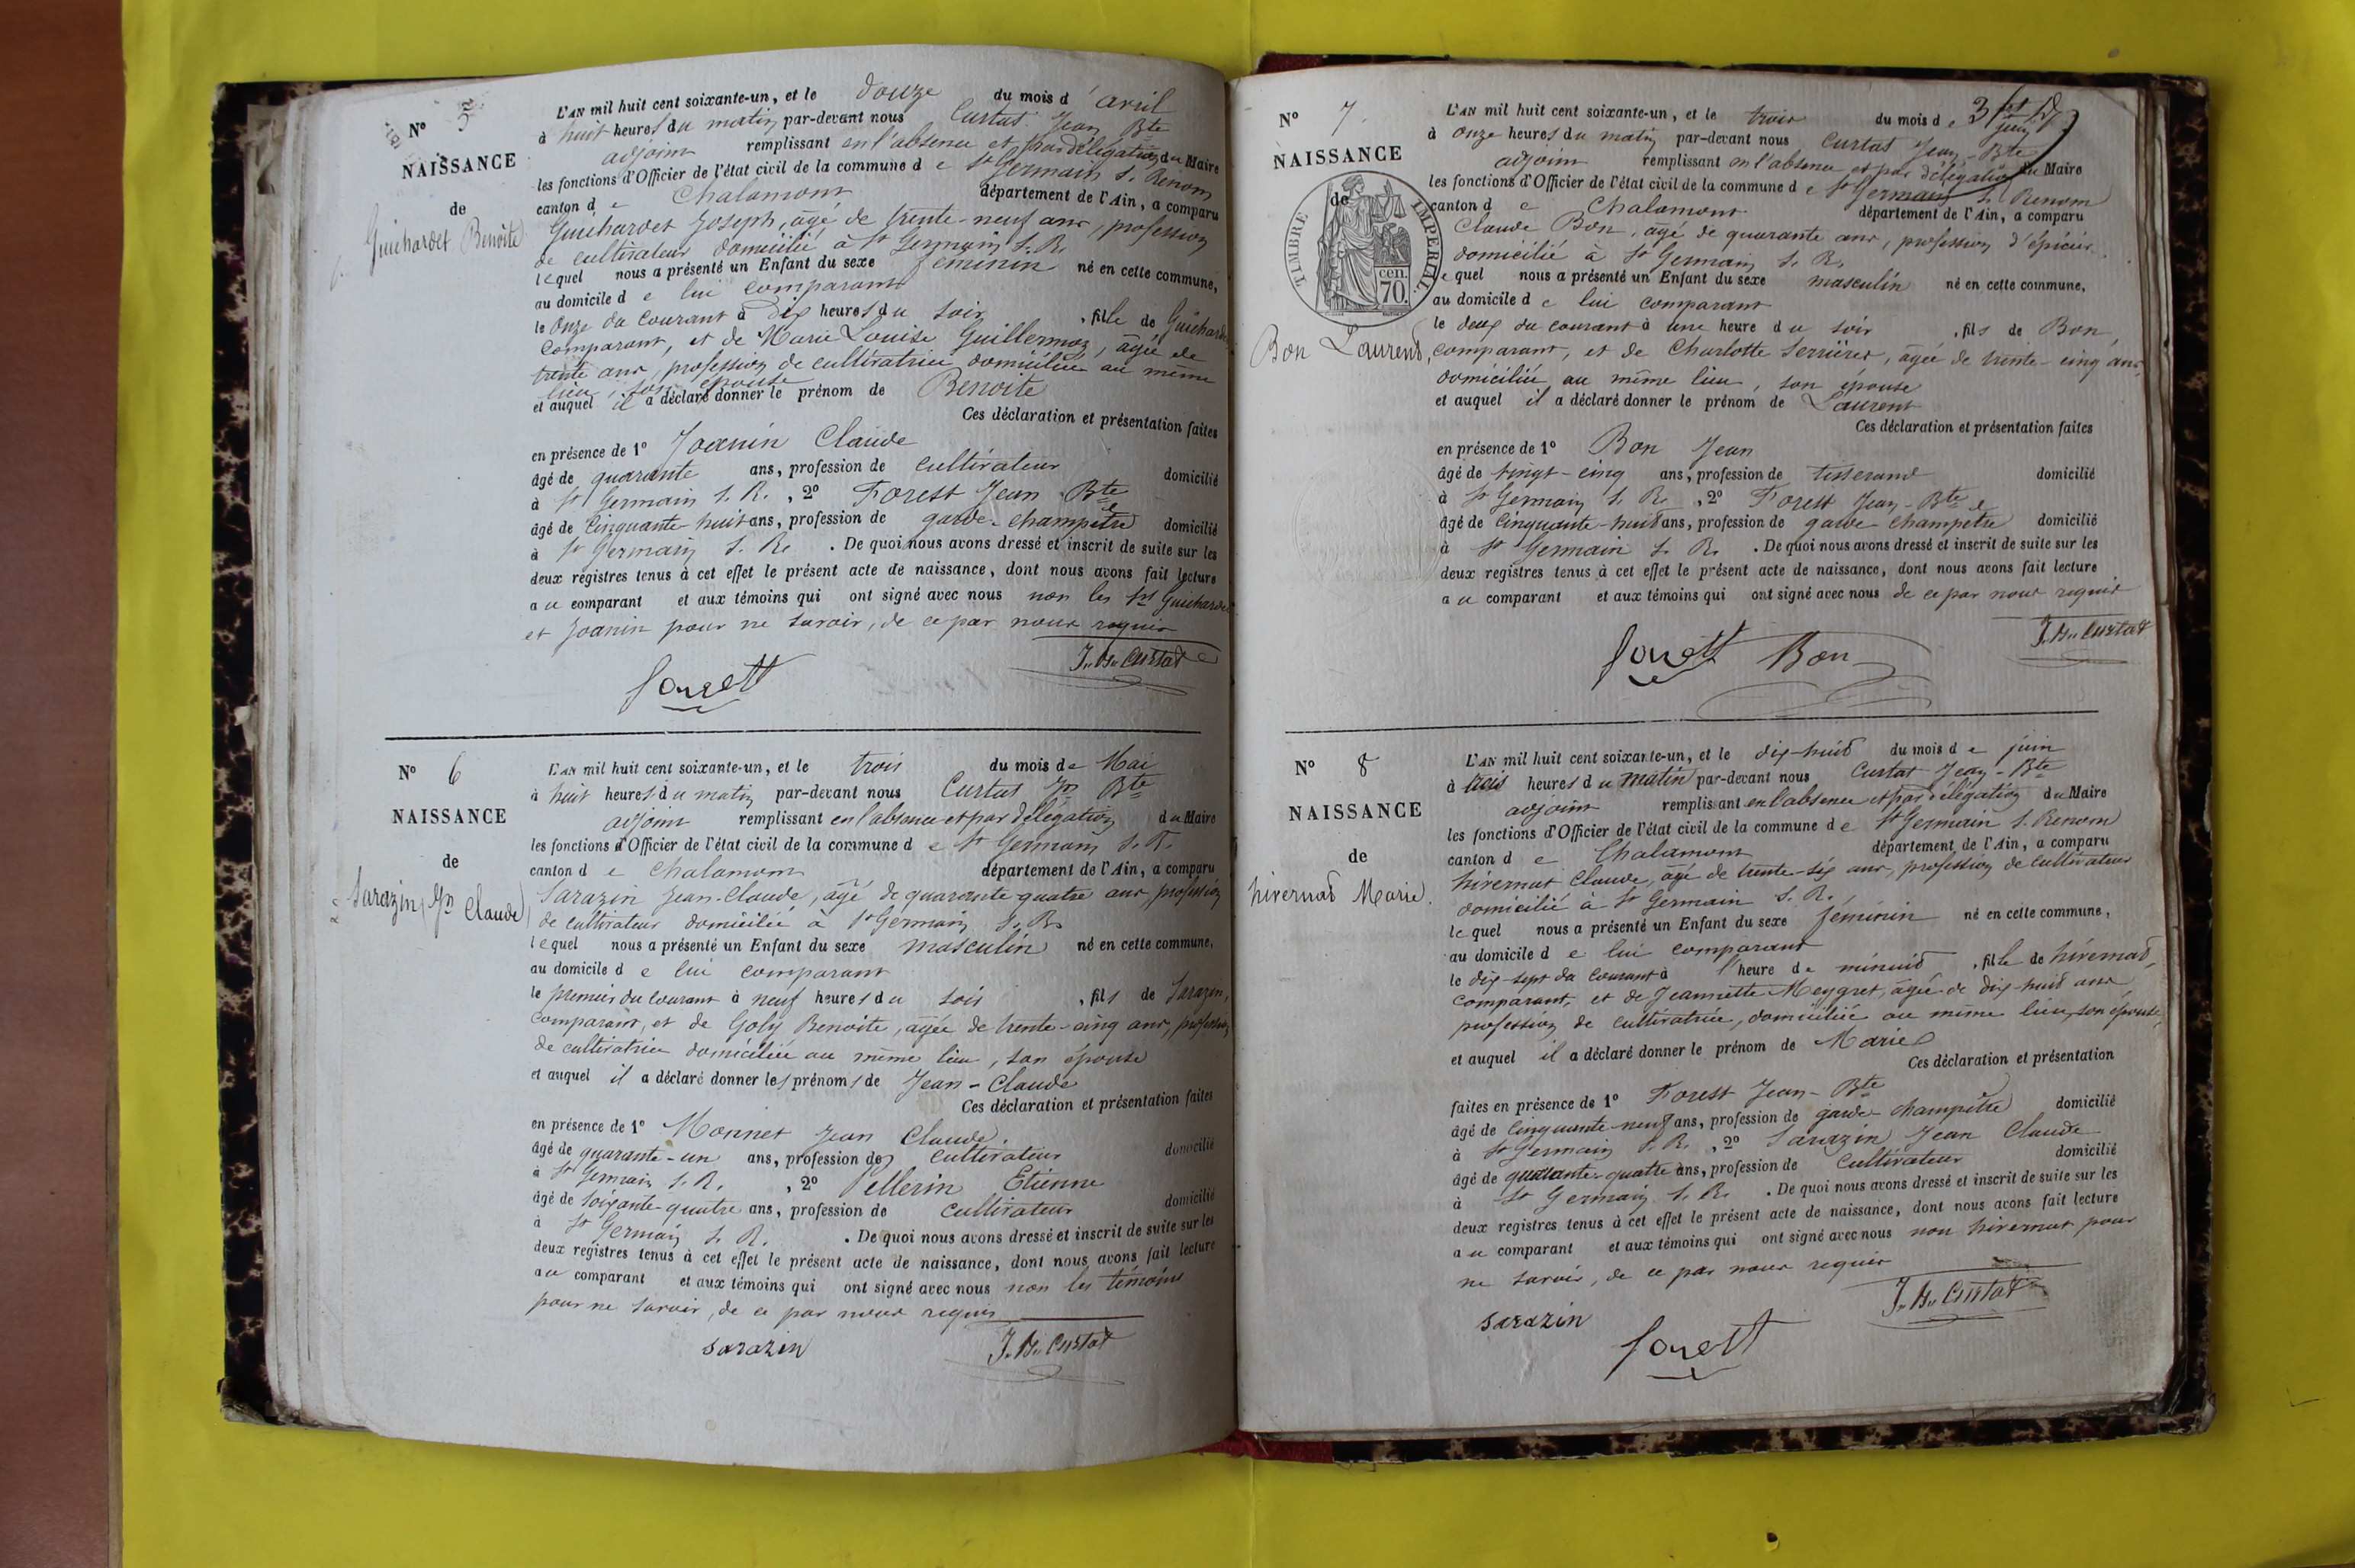 N° 5
NAISSANCE
de
Guichardet Benoite
L'AN mil huit cent soixante-un, et le douze du mois d' avril
à huit heures du matin par-devant nous Curtat Jean Bte
adjoint remplissant en l'absence et par délégation du Maire
les fonctions d'Officier de l'état civil de la commune de St Germain S. Renom
canton de Chalamont département de l'Ain, a comparu
Guichardet Joseph, âgé de trente-neuf ans, profession
de cultivateur domicilié à St Germain S. R.
lequel nous a présenté un Enfant du sexe féminin né en cette commune,
au domicile de lui comparant
le onze du courant à dix heures du soir, fille de Guichardet
comparant, et de Marie Louise Guillermoz, âgée de
trente ans, profession de cultivatrice domiciliée au même
lieu, son épouse
et auquel il a déclaré donner le prénom de Benoite
Ces déclaration et présentation faites
en présence de 1° Joanin Claude
âgé de quarante ans, profession de cultivateur domicilié
à St Germain S. R., 2° Forest Jean Bte
âgé de cinquante-huit ans, profession de garde-champêtre domicilié
à St Germain S. R. . De quoi nous avons dressé et inscrit de suite sur les
deux registres tenus à cet effet le présent acte de naissance, dont nous avons fait lecture
au comparant et aux témoins qui ont signé avec nous non les srs Guichardet
et Joanin pour ne savoir, de ce par nous requis
J. B. Curtat
forest
N° 6
NAISSANCE
de
Sarazin Jn Claude
L'AN mil huit cent soixante-un, et le trois du mois de Mai
à huit heures du matin par-devant nous Curtat Jn Bte
adjoint remplissant en l'absence et par délégation du Maire
les fonctions d'Officier de l'état civil de la commune de St Germain S. R.
canton de Chalamont département de l'Ain, a comparu
Sarazin Jean-Claude, âgé de quarante quatre ans, profession
de cultivateur domicilié à St Germain S. R.
lequel nous a présenté un Enfant du sexe masculin né en cette commune,
au domicile de lui comparant
le premier du courant à neuf heures du soir, fils de Sarazin,
comparant, et de Goly Benoite, âgée de trente-cinq ans, profession
de cultivatrice domiciliée au même lieu, son épouse
et auquel il a déclaré donner les prénoms de Jean-Claude
Ces déclaration et présentation faites
en présence de 1° Monnet Jean Claude,
âgé de quarante-un ans, profession de cultivateur domicilié
à St Germain S. R. , 2° Pellerin Etienne
âgé de soixante-quatre ans, profession de cultivateur domicilié
à St Germain S. R. . De quoi nous avons dressé et inscrit de suite sur les
deux registres tenus à cet effet le présent acte de naissance, dont nous avons fait lecture
au comparant et aux témoins qui ont signé avec nous non les témoins
pour ne savoir, de ce par nous requis
sarazin J. B. Curtat
N° 7.
NAISSANCE
de
TIMBRE IMPERIAL
70 cen.
Bon Laurent,
L'AN mil huit cent soixante-un, et le trois du mois de juin
à onze heures du matin par-devant nous Curtat Jean-Bte
adjoint remplissant en l'absence et par délégation du Maire
les fonctions d'Officier de l'état civil de la commune de St Germain S. Renom
canton de Chalamont département de l'Ain, a comparu
Claude Bon, âgé de quarante ans, profession d'épicier
domicilié à St Germain S. R.
lequel nous a présenté un Enfant du sexe masculin né en cette commune,
au domicile de lui comparant
le deux du courant à une heure du soir, fils de Bon,
comparant, et de Charlotte Serrières, âgée de trente-cinq ans,
domiciliée au même lieu, son épouse
et auquel il a déclaré donner le prénom de Laurent
Ces déclaration et présentation faites
en présence de 1° Bon Jean
âgé de vingt-cinq ans, profession de tisserand domicilié
à St Germain S. R. , 2° Forest Jean-Bte
âgé de cinquante-huit ans, profession de garde champêtre domicilié
à St Germain S. R. . De quoi nous avons dressé et inscrit de suite sur les
deux registres tenus à cet effet le présent acte de naissance, dont nous avons fait lecture
au comparant et aux témoins qui ont signé avec nous de ce par nous requis
J. B. Curtat
forest Bon
N° 8
NAISSANCE
de
hivernat Marie.
L'AN mil huit cent soixante-un, et le dix-huit du mois de juin
à trois heures du matin par-devant nous Curtat Jean-Bte
adjoint remplissant en l'absence et par délégation du Maire
les fonctions d'Officier de l'état civil de la commune de St Germain S. Renom
canton de Chalamont département de l'Ain, a comparu
hivernat Claude, âgé de trente-six ans, profession de cultivateur
domicilié à St Germain S. R.
lequel nous a présenté un Enfant du sexe féminin né en cette commune,
au domicile de lui comparant
le dix-sept du courant à l'heure de minuit, fille de hivernat,
comparant, et de Jeannette Meygret, âgée de dix-huit ans
profession de cultivatrice, domiciliée au même lieu, son épouse,
et auquel il a déclaré donner le prénom de Marie
Ces déclaration et présentation
faites en présence de 1° Forest Jean-Bte
âgé de cinquante-neuf ans, profession de garde-champêtre domicilié
à St Germain S. R. , 2° Sarazin Jean Claude
âgé de quarante-quatre ans, profession de cultivateur domicilié
à St Germain S. R. . De quoi nous avons dressé et inscrit de suite sur les
deux registres tenus à cet effet le présent acte de naissance, dont nous avons fait lecture
au comparant et aux témoins qui ont signé avec nous non hivernat pour
ne savoir, de ce par nous requis
J. B. Curtat
sarazin
forest